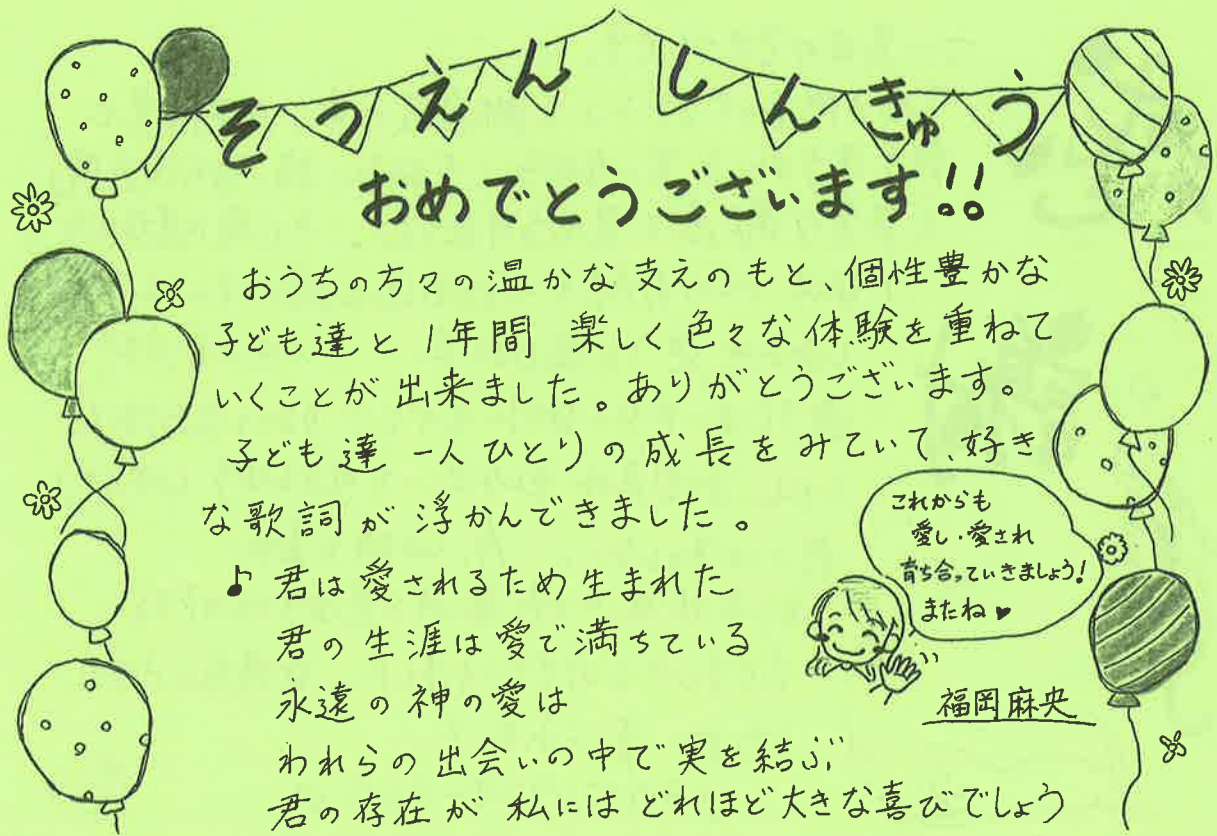 そつえん しんきゅう
おめでとうございます!!
おうちの方々の温かな支えのもと、個性豊かな
子ども達と1年間 楽しく色々な体験を重ねて
いくことが出来ました。ありがとうございます。
子ども達 一人ひとりの成長をみていて、好き
な歌詞が浮かんできました。
♪ 君は愛されるため生まれた
君の生涯は愛で満ちている
永遠の神の愛は
われらの出会いの中で実を結ぶ
君の存在が 私には どれほど大きな喜びでしょう
これからも
愛し・愛され
育ち合っていきましょう!
またね♥
福岡麻央